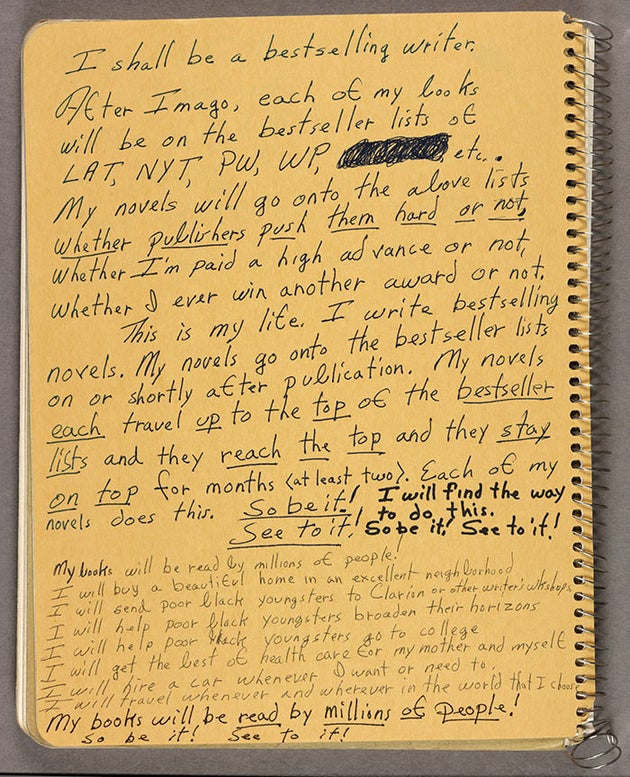 I shall be a bestselling writer.
After Imago, each of my books
will be on the bestseller lists of
LAT, NYT, PW, WP, etc..
My novels will go onto the above lists
whether publishers push them hard or not,
whether I'm paid a high advance or not,
whether I ever win another award or not.
This is my life. I write bestselling
novels. My novels go onto the bestseller lists
on or shortly after publication. My novels
each travel up to the top of the bestseller
lists and they reach the top and they stay
on top for months (at least two). Each of my
novels does this. So be it! I will find the way
to do this.
See to it! So be it! See to it!
My books will be read by millions of people!
I will buy a beautiful home in an excellent neighborhood
I will send poor black youngsters to Clarion or other writer's wkshops
I will help poor black youngsters broaden their horizons
I will help poor black youngsters go to college
I will get the best of health care for my mother and myself
I will hire a car whenever I want or need to.
I will travel whenever and wherever in the world that I choose
My books will be read by millions of people!
So be it! See to it!